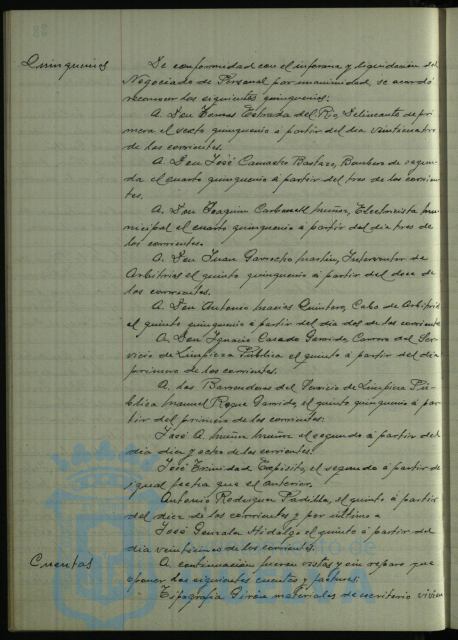 Quinquenios
De conformidad con el informe y liquidación del
Negociado de Personal por unanimidad, se acordó
reconocer los siguientes quinquenios:
A. Don Tomas Estrada del Rio, Delineante de pri
mera el sexto quinquenio á partir del dia veinticuatro
de los corrientes.
A. Don José Camacho Bastos, Bombero de segun
da el cuarto quinquenio á partir del tres de los corrien
tes.
A. Don Joaquin Carbonell Muñoz, Electricista mu
nicipal el cuarto quinquenio á partir del dia tres de
los corrientes.
A. Don Juan Garrocho Martin, Interventor de
Arbitrios el quinto quinquenio á partir del doce de
los corrientes.
A. Don Antonio Macias Quintero, Cabo de Arbitrios
el quinto quinquenio á partir del dia dos de los corrientes
A. Don Ignacio Casado Garrido, Carrero del Ser
vicio de Limpieza Pública el quinto á partir del dia
primero de los corrientes.
A. los Barrenderos del Servicio de Limpieza Pú
blica Manuel Roque Garrido, el quinto quinquenio á par
tir del primero de los corrientes;
José A. Muñoz Muñoz el segundo á partir del
dia diez y ocho de los corrientes;
José Trinidad Expósito, el segundo á partir de
igual fecha que el anterior.
Antonio Rodriguez Padilla, el quinto á partir
del diez de los corrientes y por último a
José Gonzalez Hidalgo el quinto á partir del
dia veinticinco de los corrientes.
Cuentas
A continuación fueron vistas y sin reparo que
oponer las siguientes cuentas y facturas:
Tipografía Girón materiales de escritorio